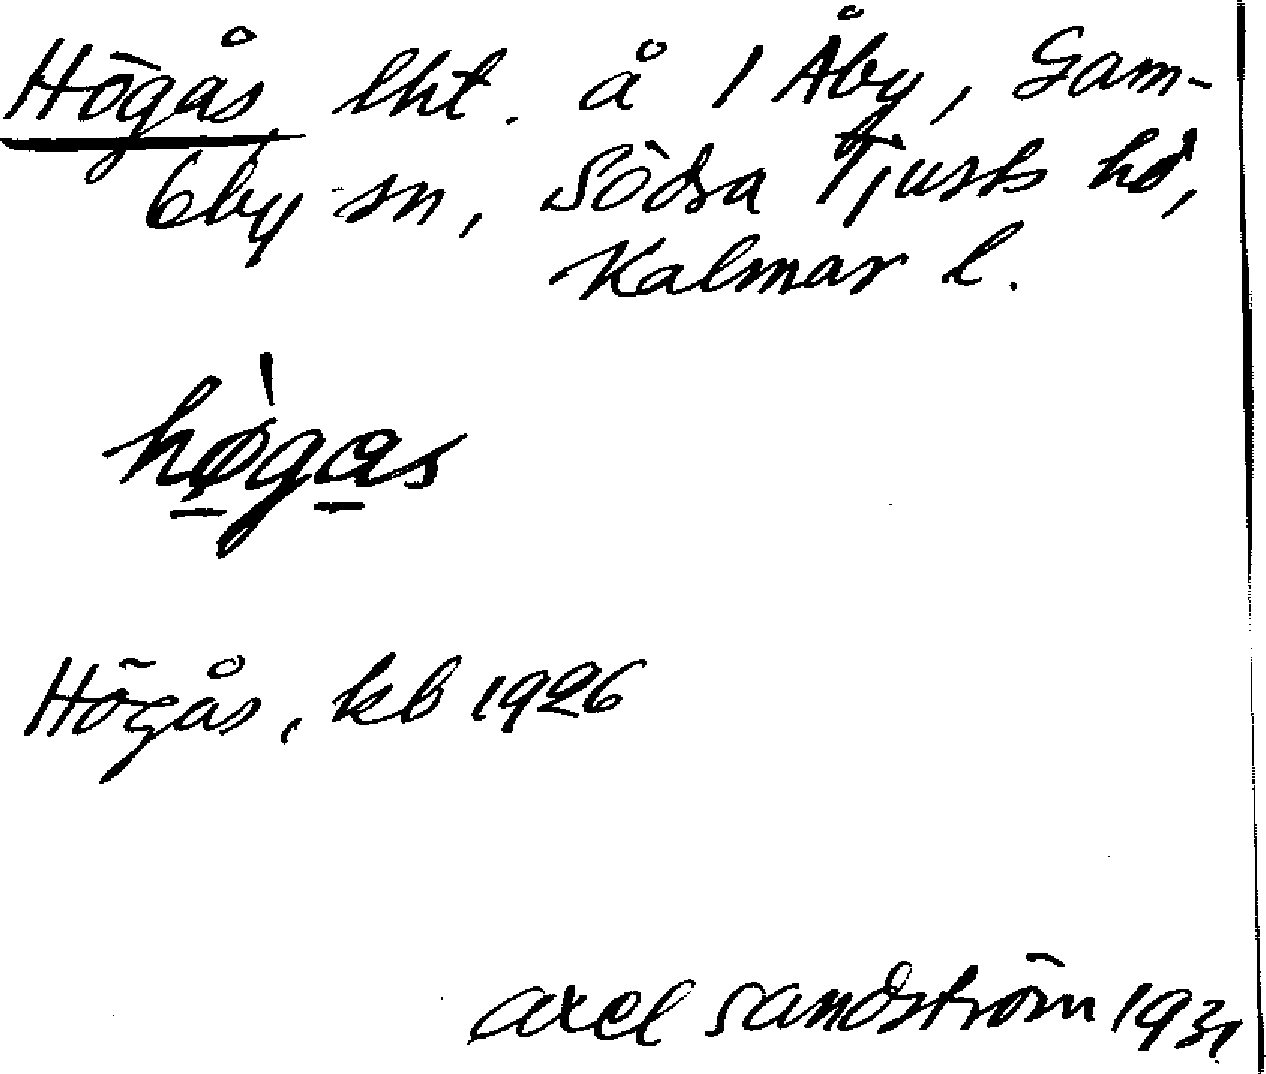 Högås, lht. å 1 Åby, Gam-
leby sn, Södra Tjusts hd,
Kalmar l.
hø̱̀ga̱s
Högås, kb 1926
Axel Sandström 1931